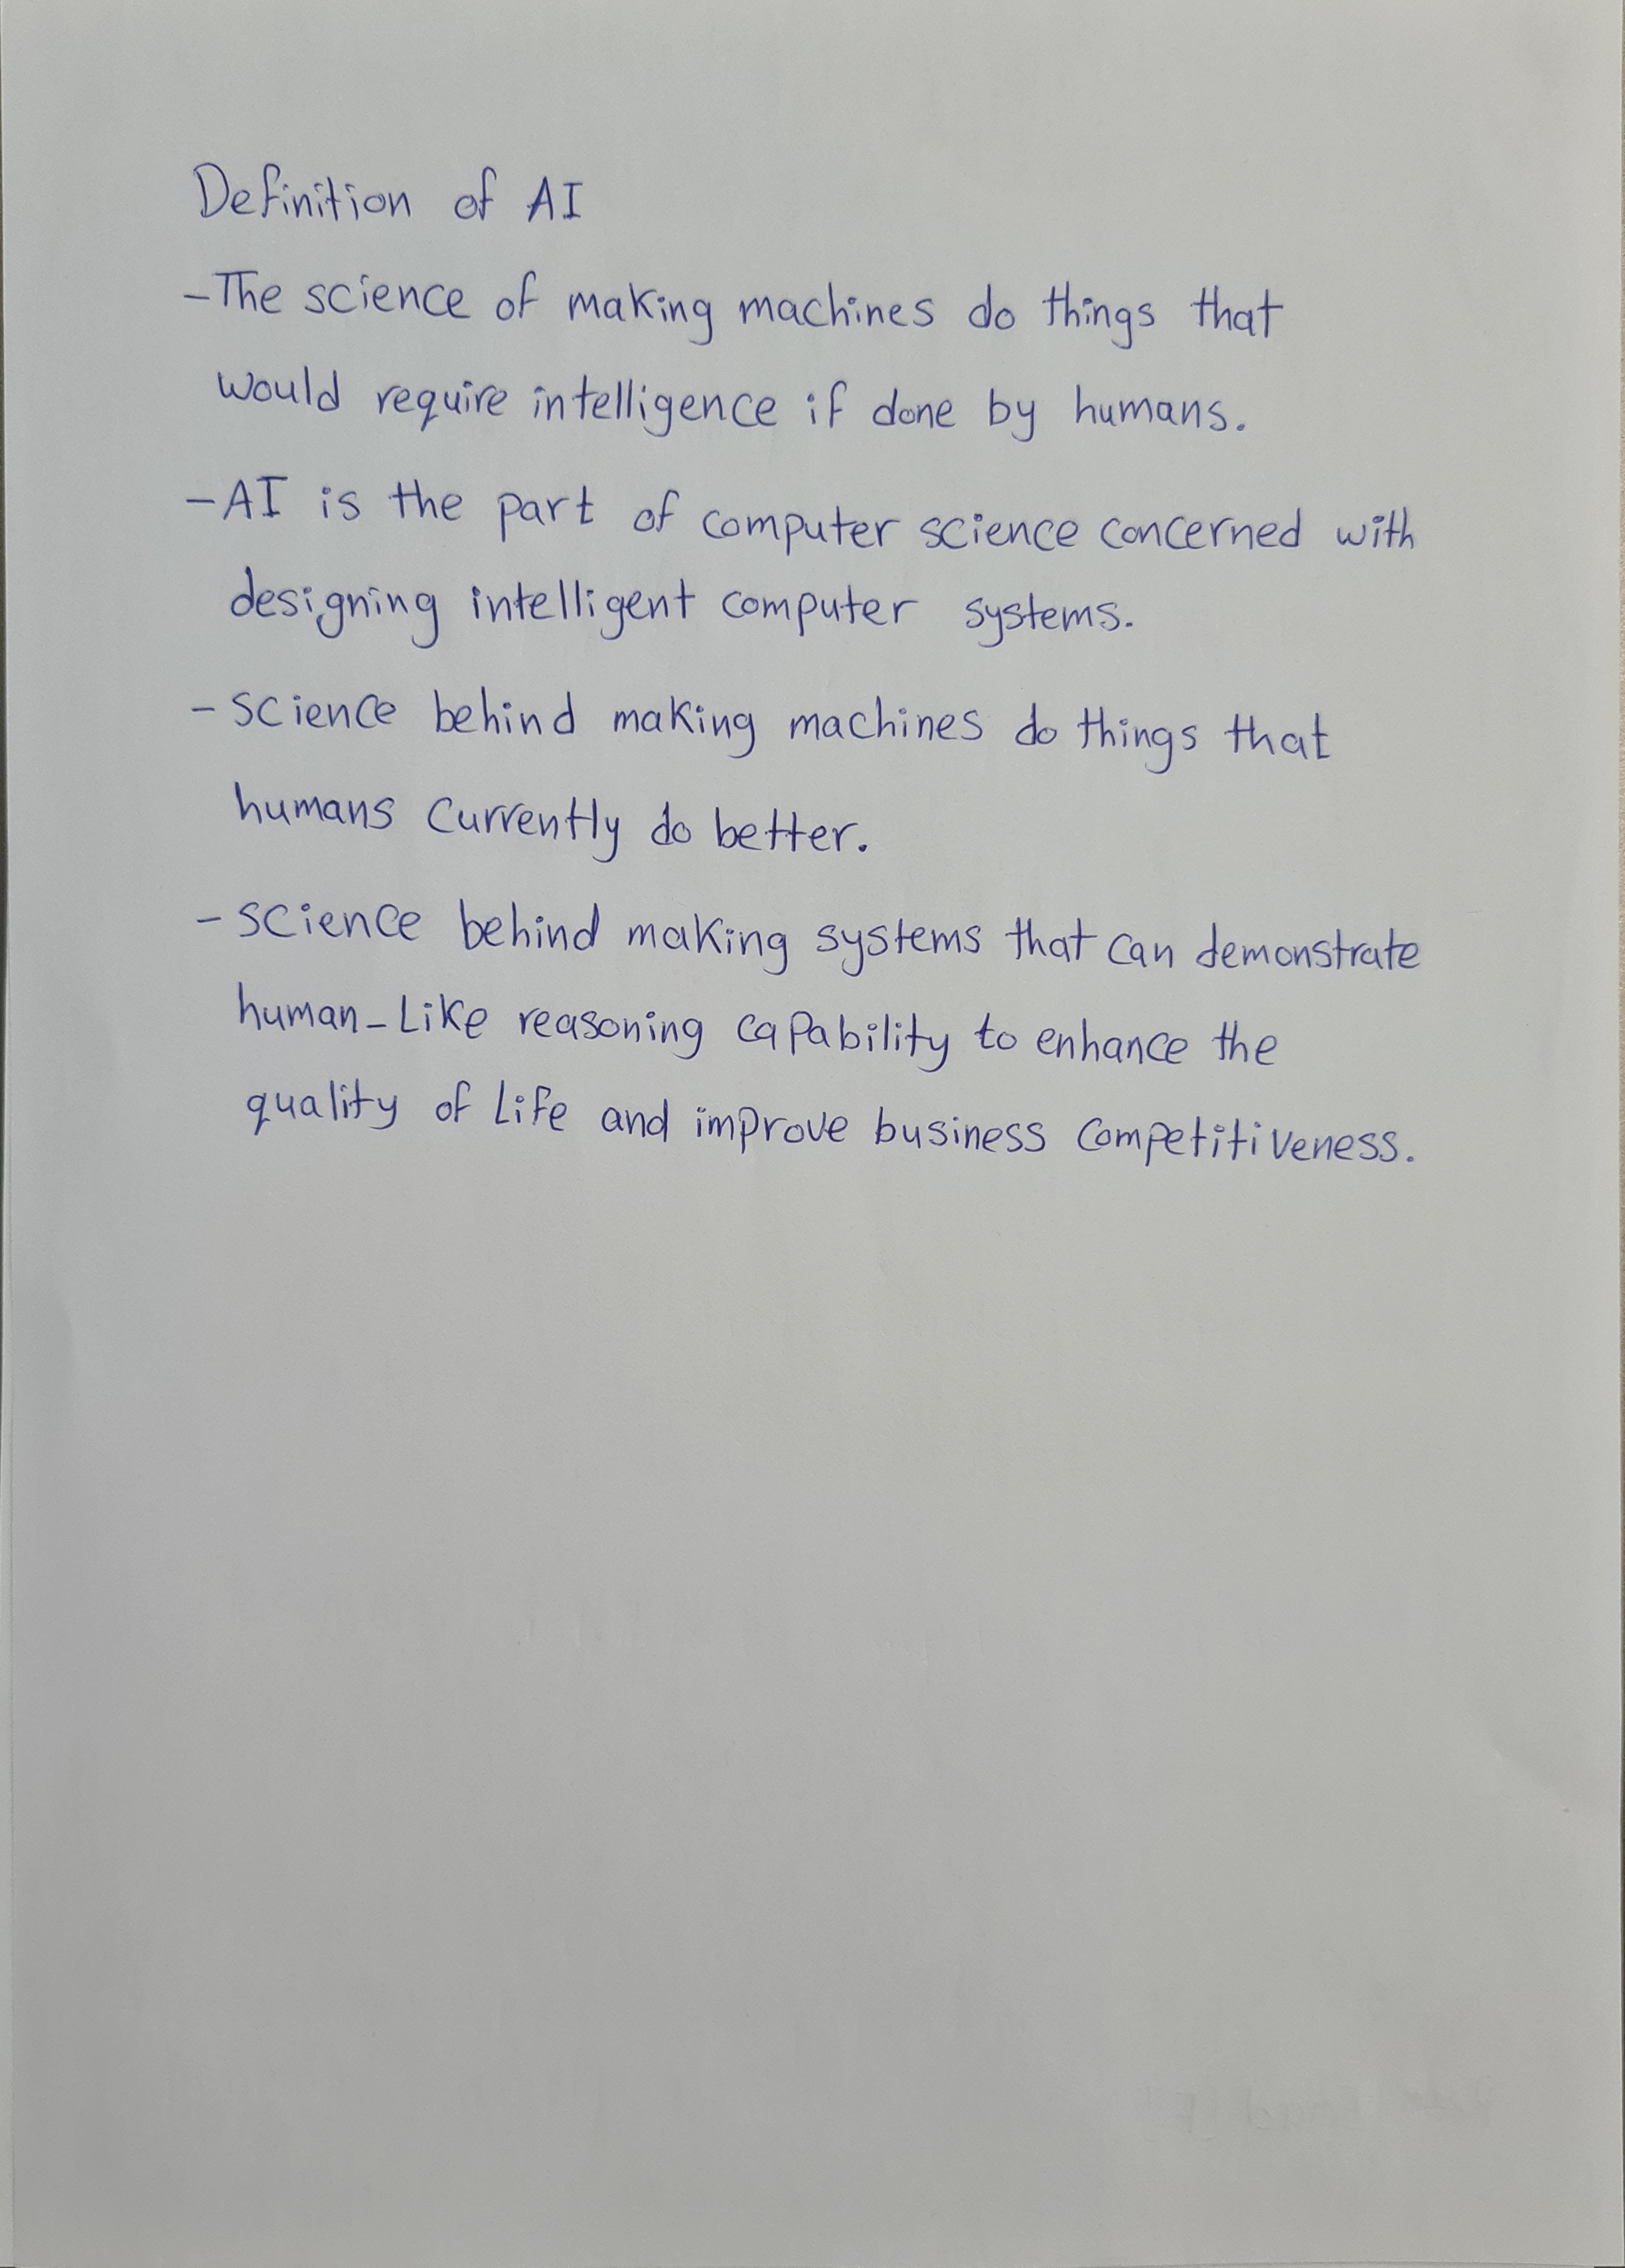 Definition of AI
-The science of making machines do things that
would require intelligence if done by humans.
-AI is the part of computer science concerned with
designing intelligent computer systems.
- science behind making machines do things that
humans currently do better.
- science behind making systems that can demonstrate
human-Like reasoning capability to enhance the
quality of Life and improve business competitiveness.